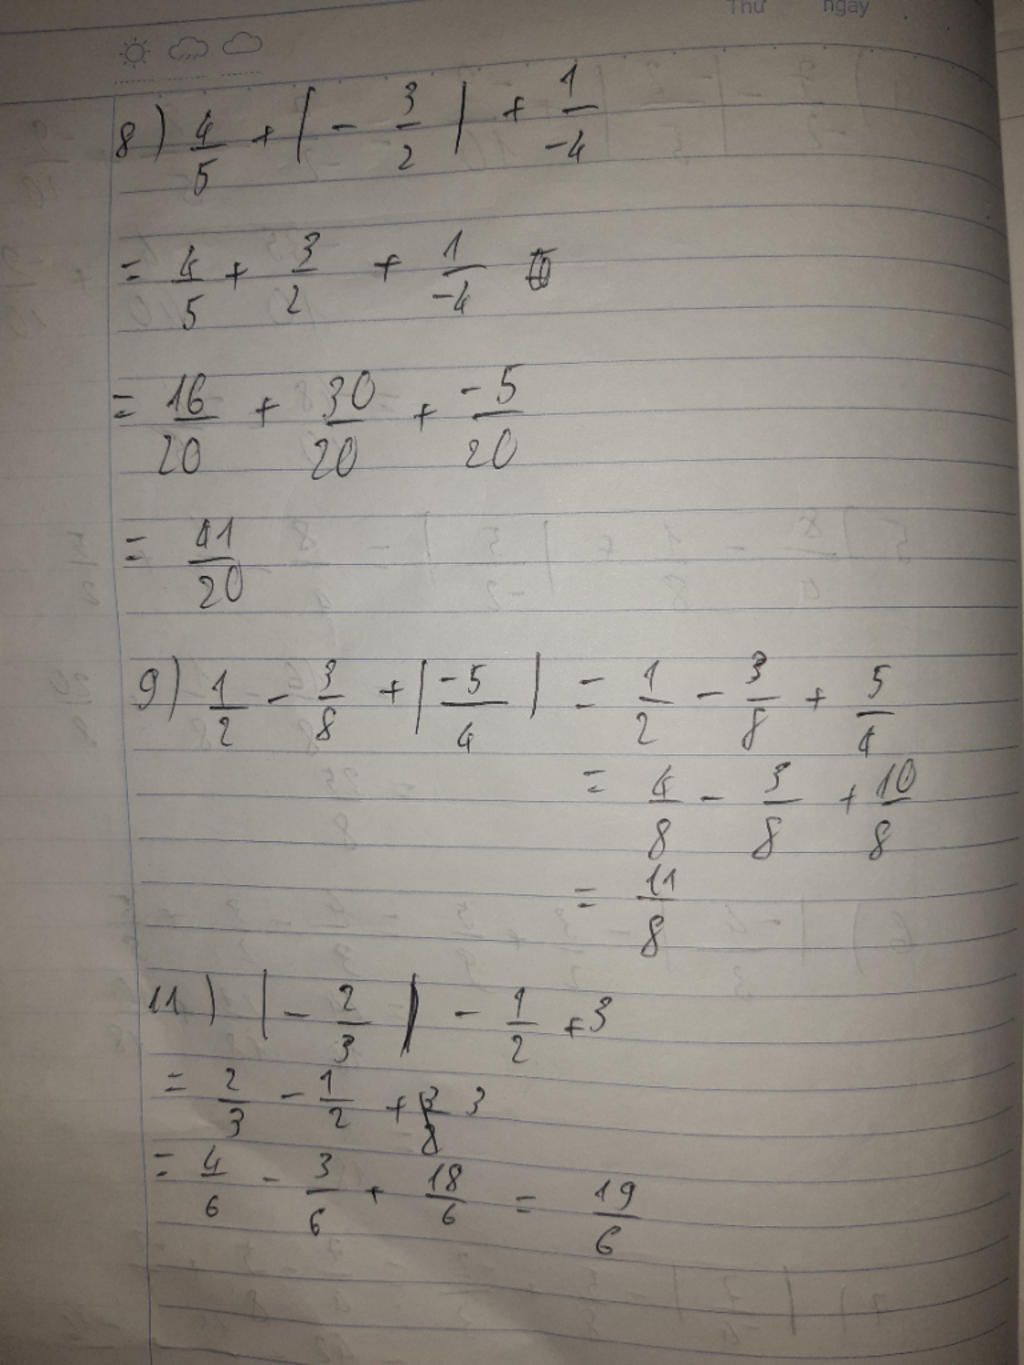 Thứ ngày
8) 4/5 + |- 3/2| + 1/-4
= 4/5 + 3/2 + 1/-4
= 16/20 + 30/20 + -5/20
= 41/20
9) 1/2 - 3/8 + |-5/4| = 1/2 - 3/8 + 5/4
= 4/8 - 3/8 + 10/8
= 11/8
11) |- 2/3| - 1/2 + 3
= 2/3 - 1/2 + 3
= 4/6 - 3/6 + 18/6 = 19/6